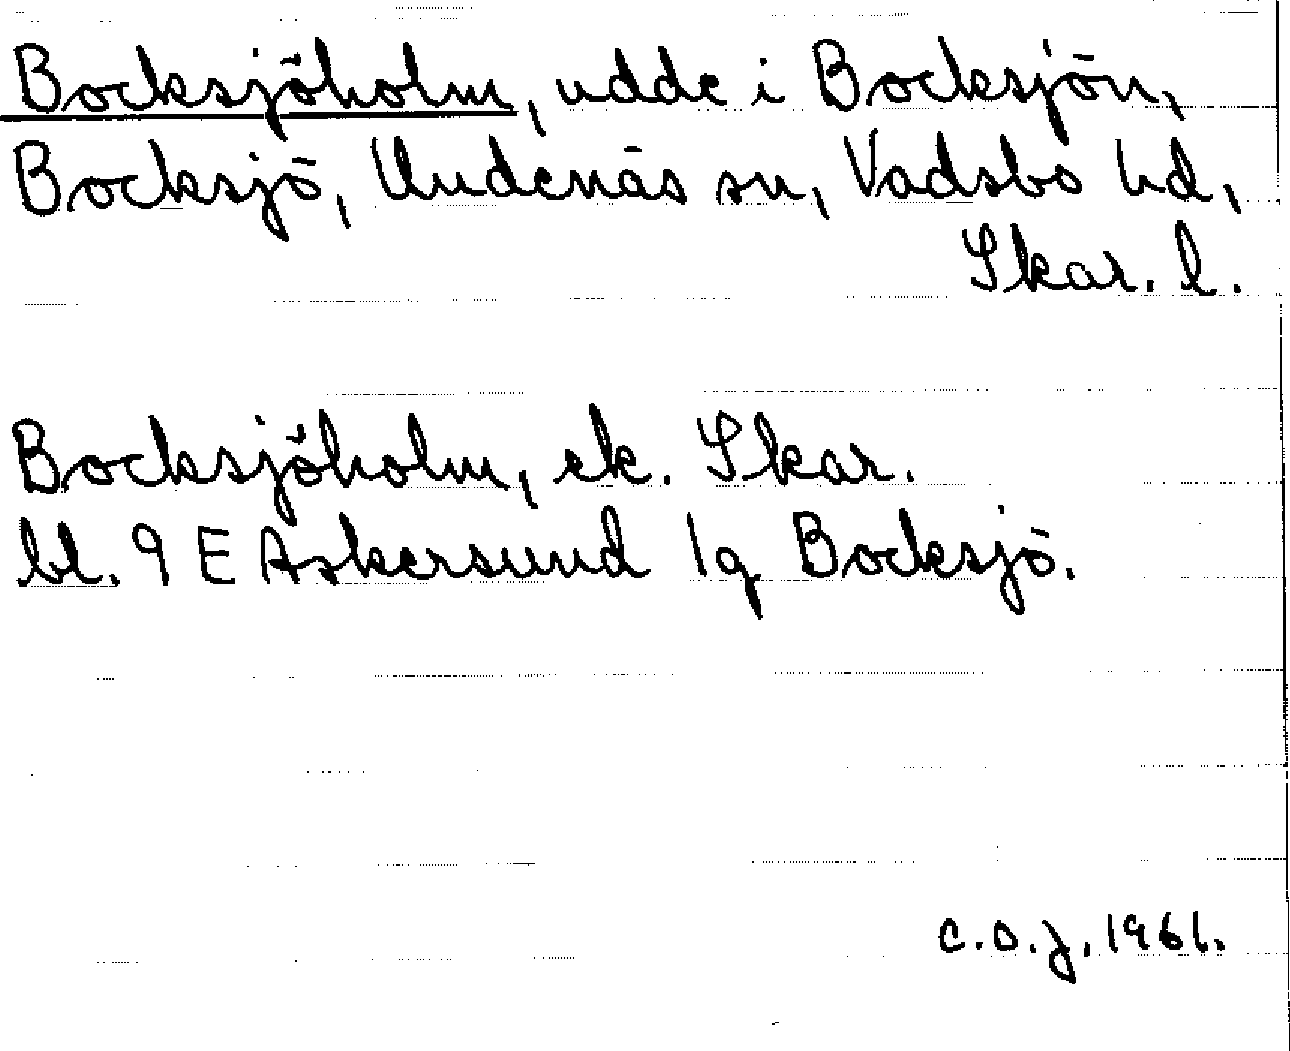 Bocksjöholm, udde i Bocksjön,
Bocksjö, Undenäs sn, Vadsbo hd,
Skar. l.
Bocksjöholm, ek. Skar.
bl. 9 E Askersund 1g Bocksjö.
C.O.J. 1961.